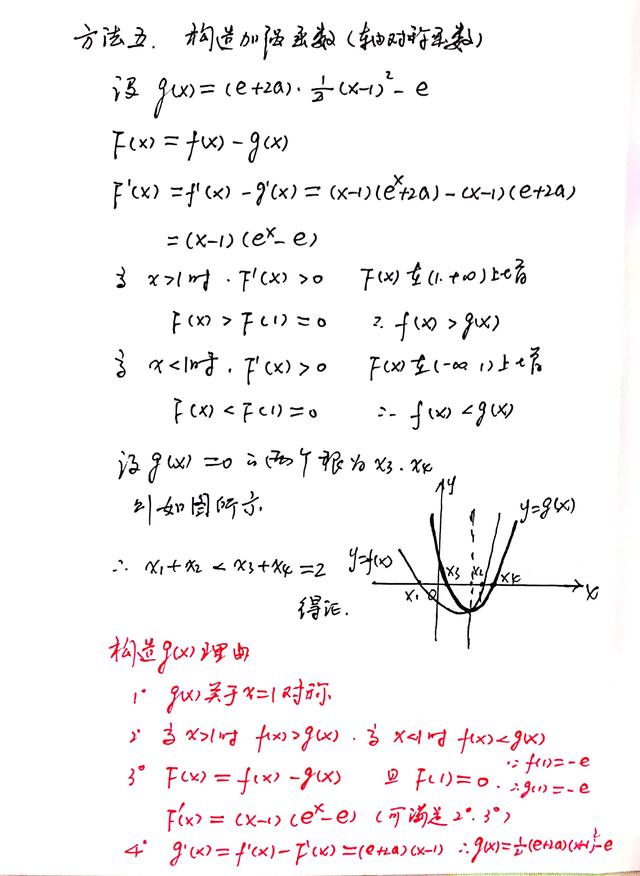 方法五. 构造加强函数(轴对称函数)
设 g(x)=(e+2a)·½(x-1)²-e
F(x)=f(x)-g(x)
F'(x)=f'(x)-g'(x)=(x-1)(eˣ+2a)-(x-1)(e+2a)
=(x-1)(eˣ-e)
当 x>1时. F'(x)>0 F(x)在(1.+∞)上增
F(x)>F(1)=0 ∴ f(x)>g(x)
当 x<1时. F'(x)>0 F(x)在(-∞ 1)上增
F(x)<F(1)=0 ∴ f(x)<g(x)
设g(x)=0的两个根为x₃.x₄
则如图所示.
y
y=g(x)
∴ x₁+x₂<x₃+x₄=2
y=f(x)
x₁ 0 x₃ x₂ x₄ x
得证.
构造g(x)理由
1° g(x)关于x=1对称.
2° 当x>1时 f(x)>g(x). 当x<1时 f(x)<g(x)
3° F(x)=f(x)-g(x) 且 F(1)=0. ∵f(1)=-e ∴g(1)=-e
F'(x)=(x-1)(eˣ-e) (可满足2°.3°)
4° g'(x)=f'(x)-F'(x)=(e+2a)(x-1) ∴g(x)=½(e+2a)(x-1)²-e